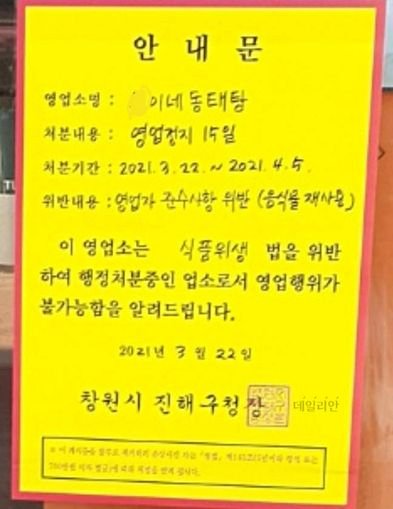 안 내 문
영업소명 : 이네 동태탕
처분내용 : 영업정지 15일
처분기간 : 2021. 3. 22. ~ 2021. 4. 5.
위반내용 : 영업자 준수사항 위반 (음식물 재사용)
이 영업소는 식품위생 법을 위반
하여 행정처분중인 업소로서 영업행위가
불가능함을 알려드립니다.
2021년 3 월 22 일
창원시 진해구청장
데일리안
※ 이 게시문을 함부로 제거하거나 손상시킨 자는 「형법」 제140조